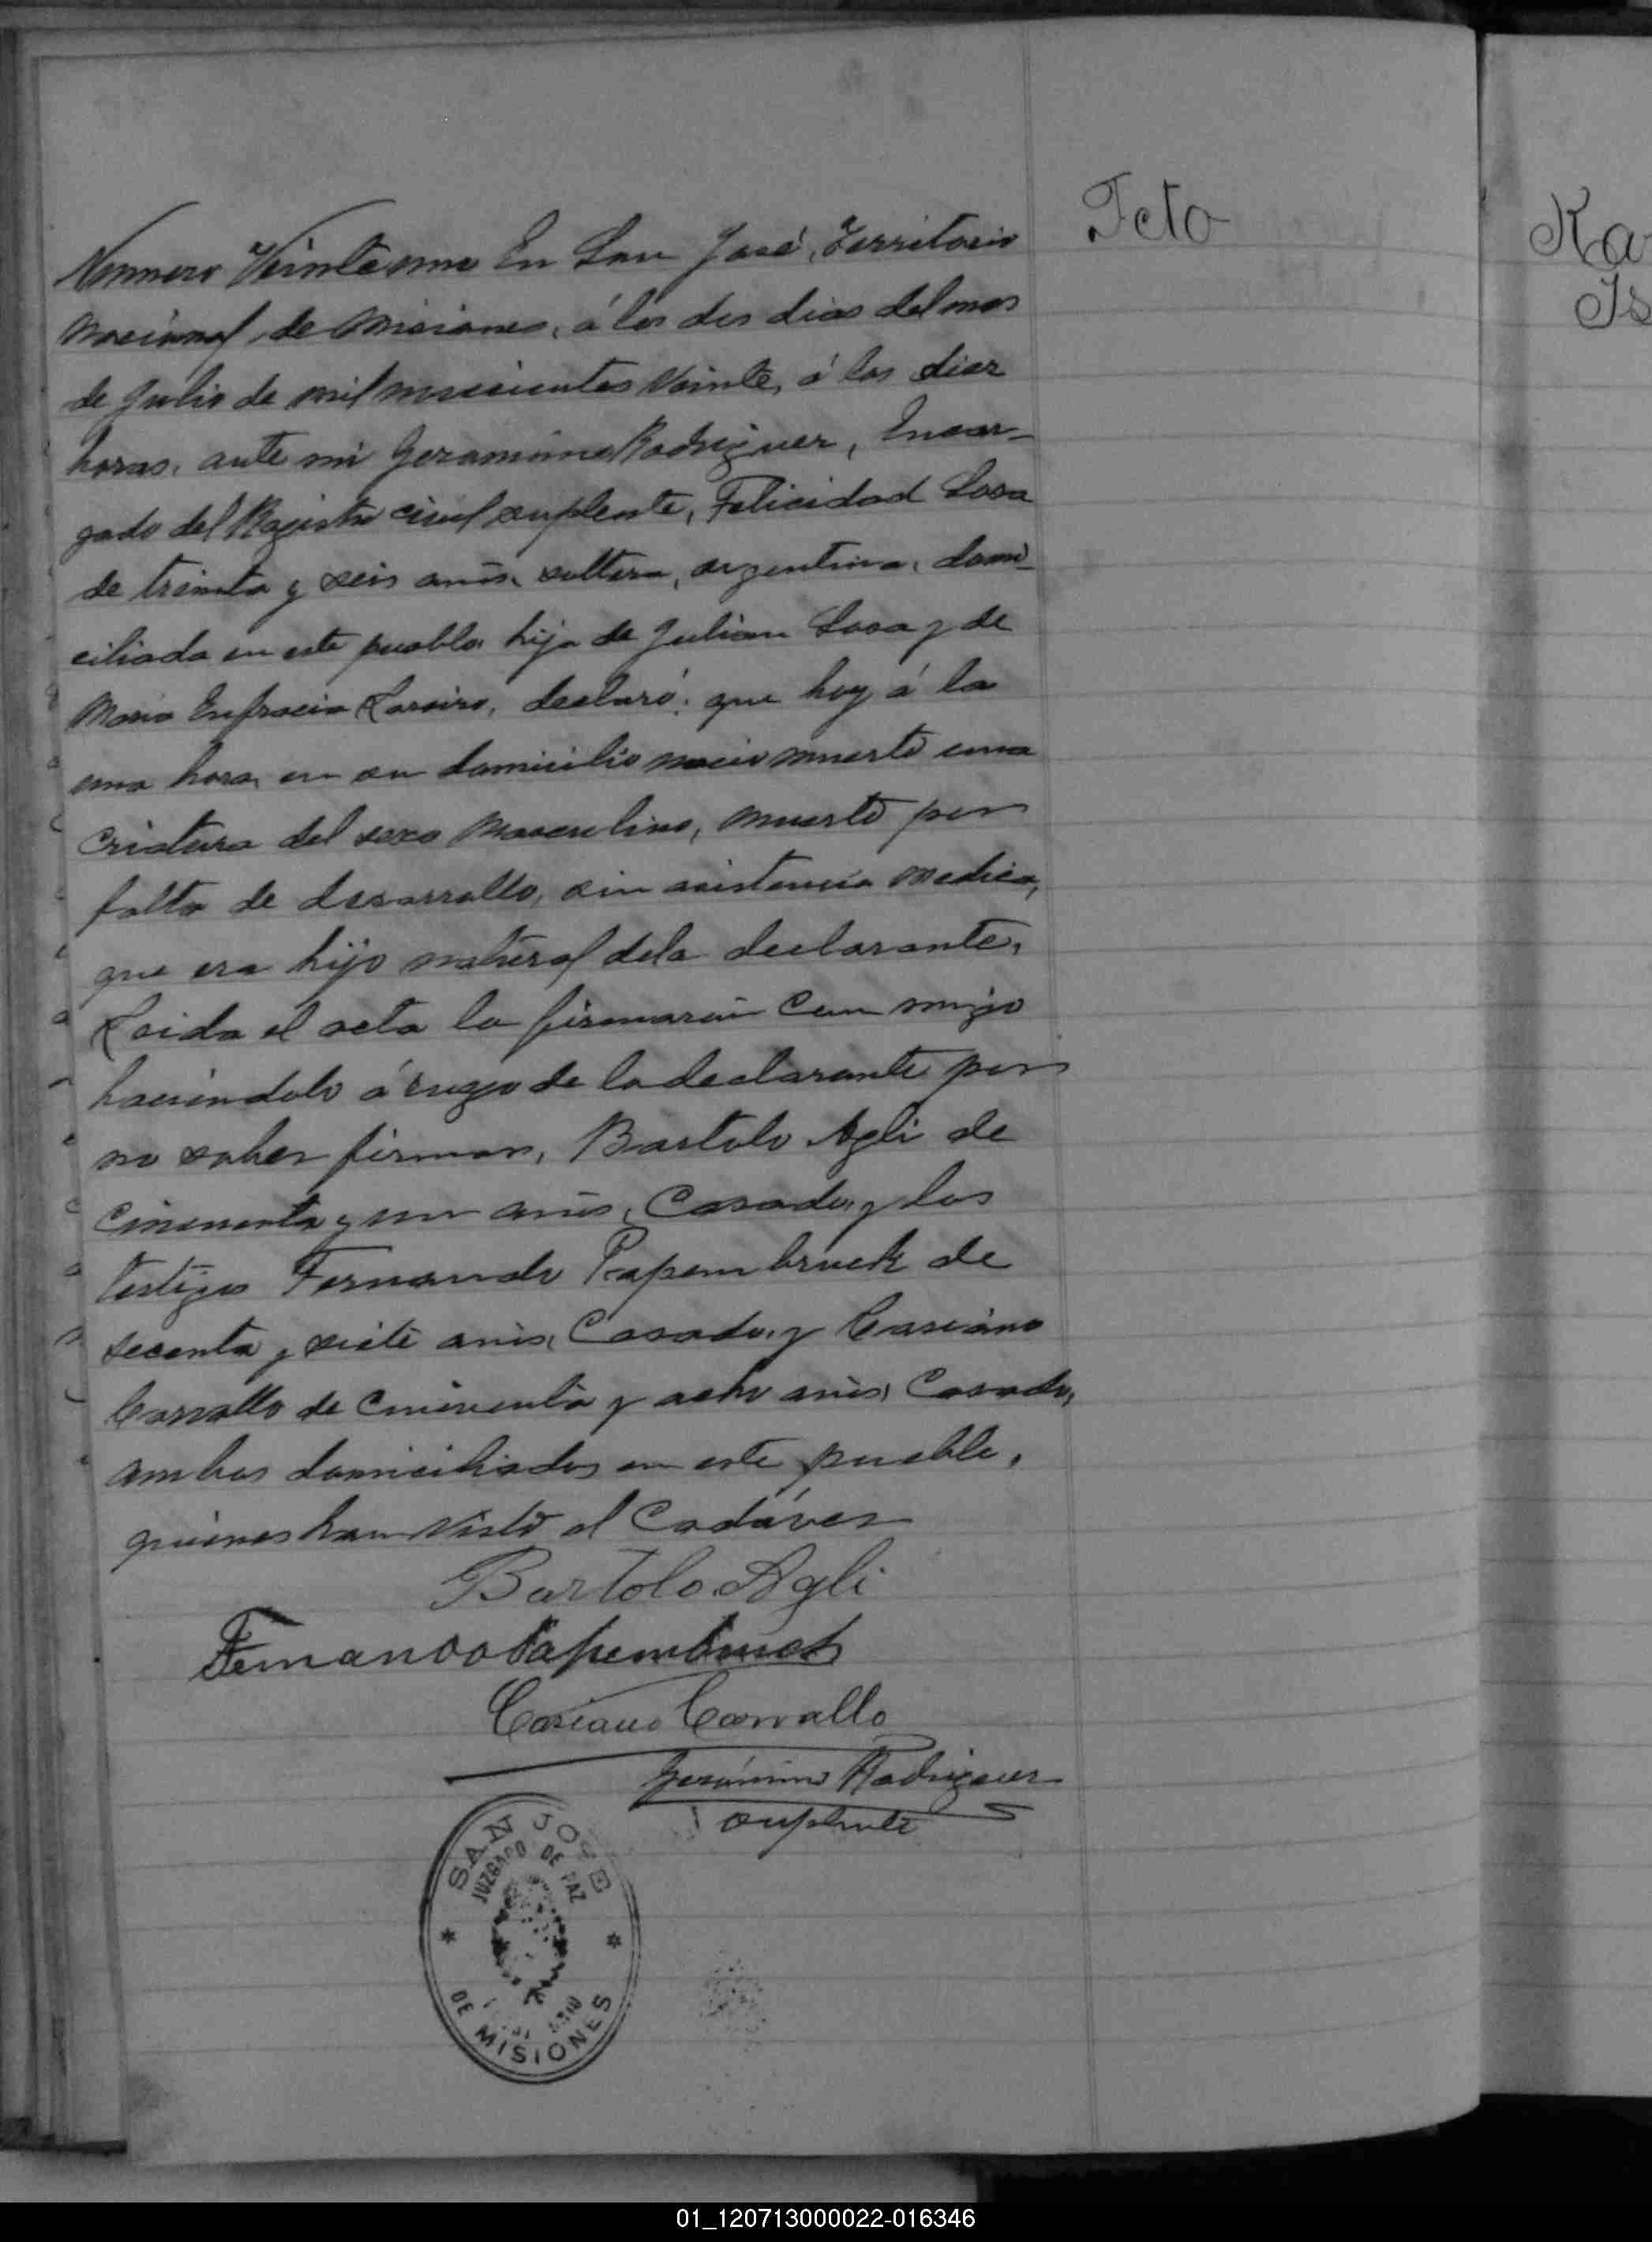 Feto
Numero Veinteuno En San José, Territorio
Nacional de Misiones, á los dos dias del mes
de Julio de mil novecientos veinte, á las diez
horas, ante mi Geronimo Rodriguez, Encar-
gado del Registro civil suplente, Felicidad Sosa
de treinta y seis anõs, soltera, argentina, domi-
ciliada en este pueblo hija de Julian Sosa y de
Maria Enfracia, declaró: que hoy á la
una hora, en su domicilio nacio muerto una
criatura del sexo masculino, muerto por
falta de desarrollo, sin asistencia medica,
que era hijo natural dela declarante,
Leida el acta la firmaron con migo
haciendolo á ruego de la declarante por
no saber firmar, Bartolo Agli de
cincuenta y un anõs, Casado, y los
testigos Fernando Papembruck de
secenta y siete anõs, Casado, y Casiano
Carvallo de cincuenta y ocho anõs, Casado,
ambos domiciliados en este pueblo,
quienes han visto el Cadáver
Bartolo Agli
Fernando Papembruck
Casiano Carvallo
Gerónimo Rodriguez
suplente
SAN JOSE
JUZGADO DE PAZ
DE MISIONES
Ka
Is
01_120713000022-016346